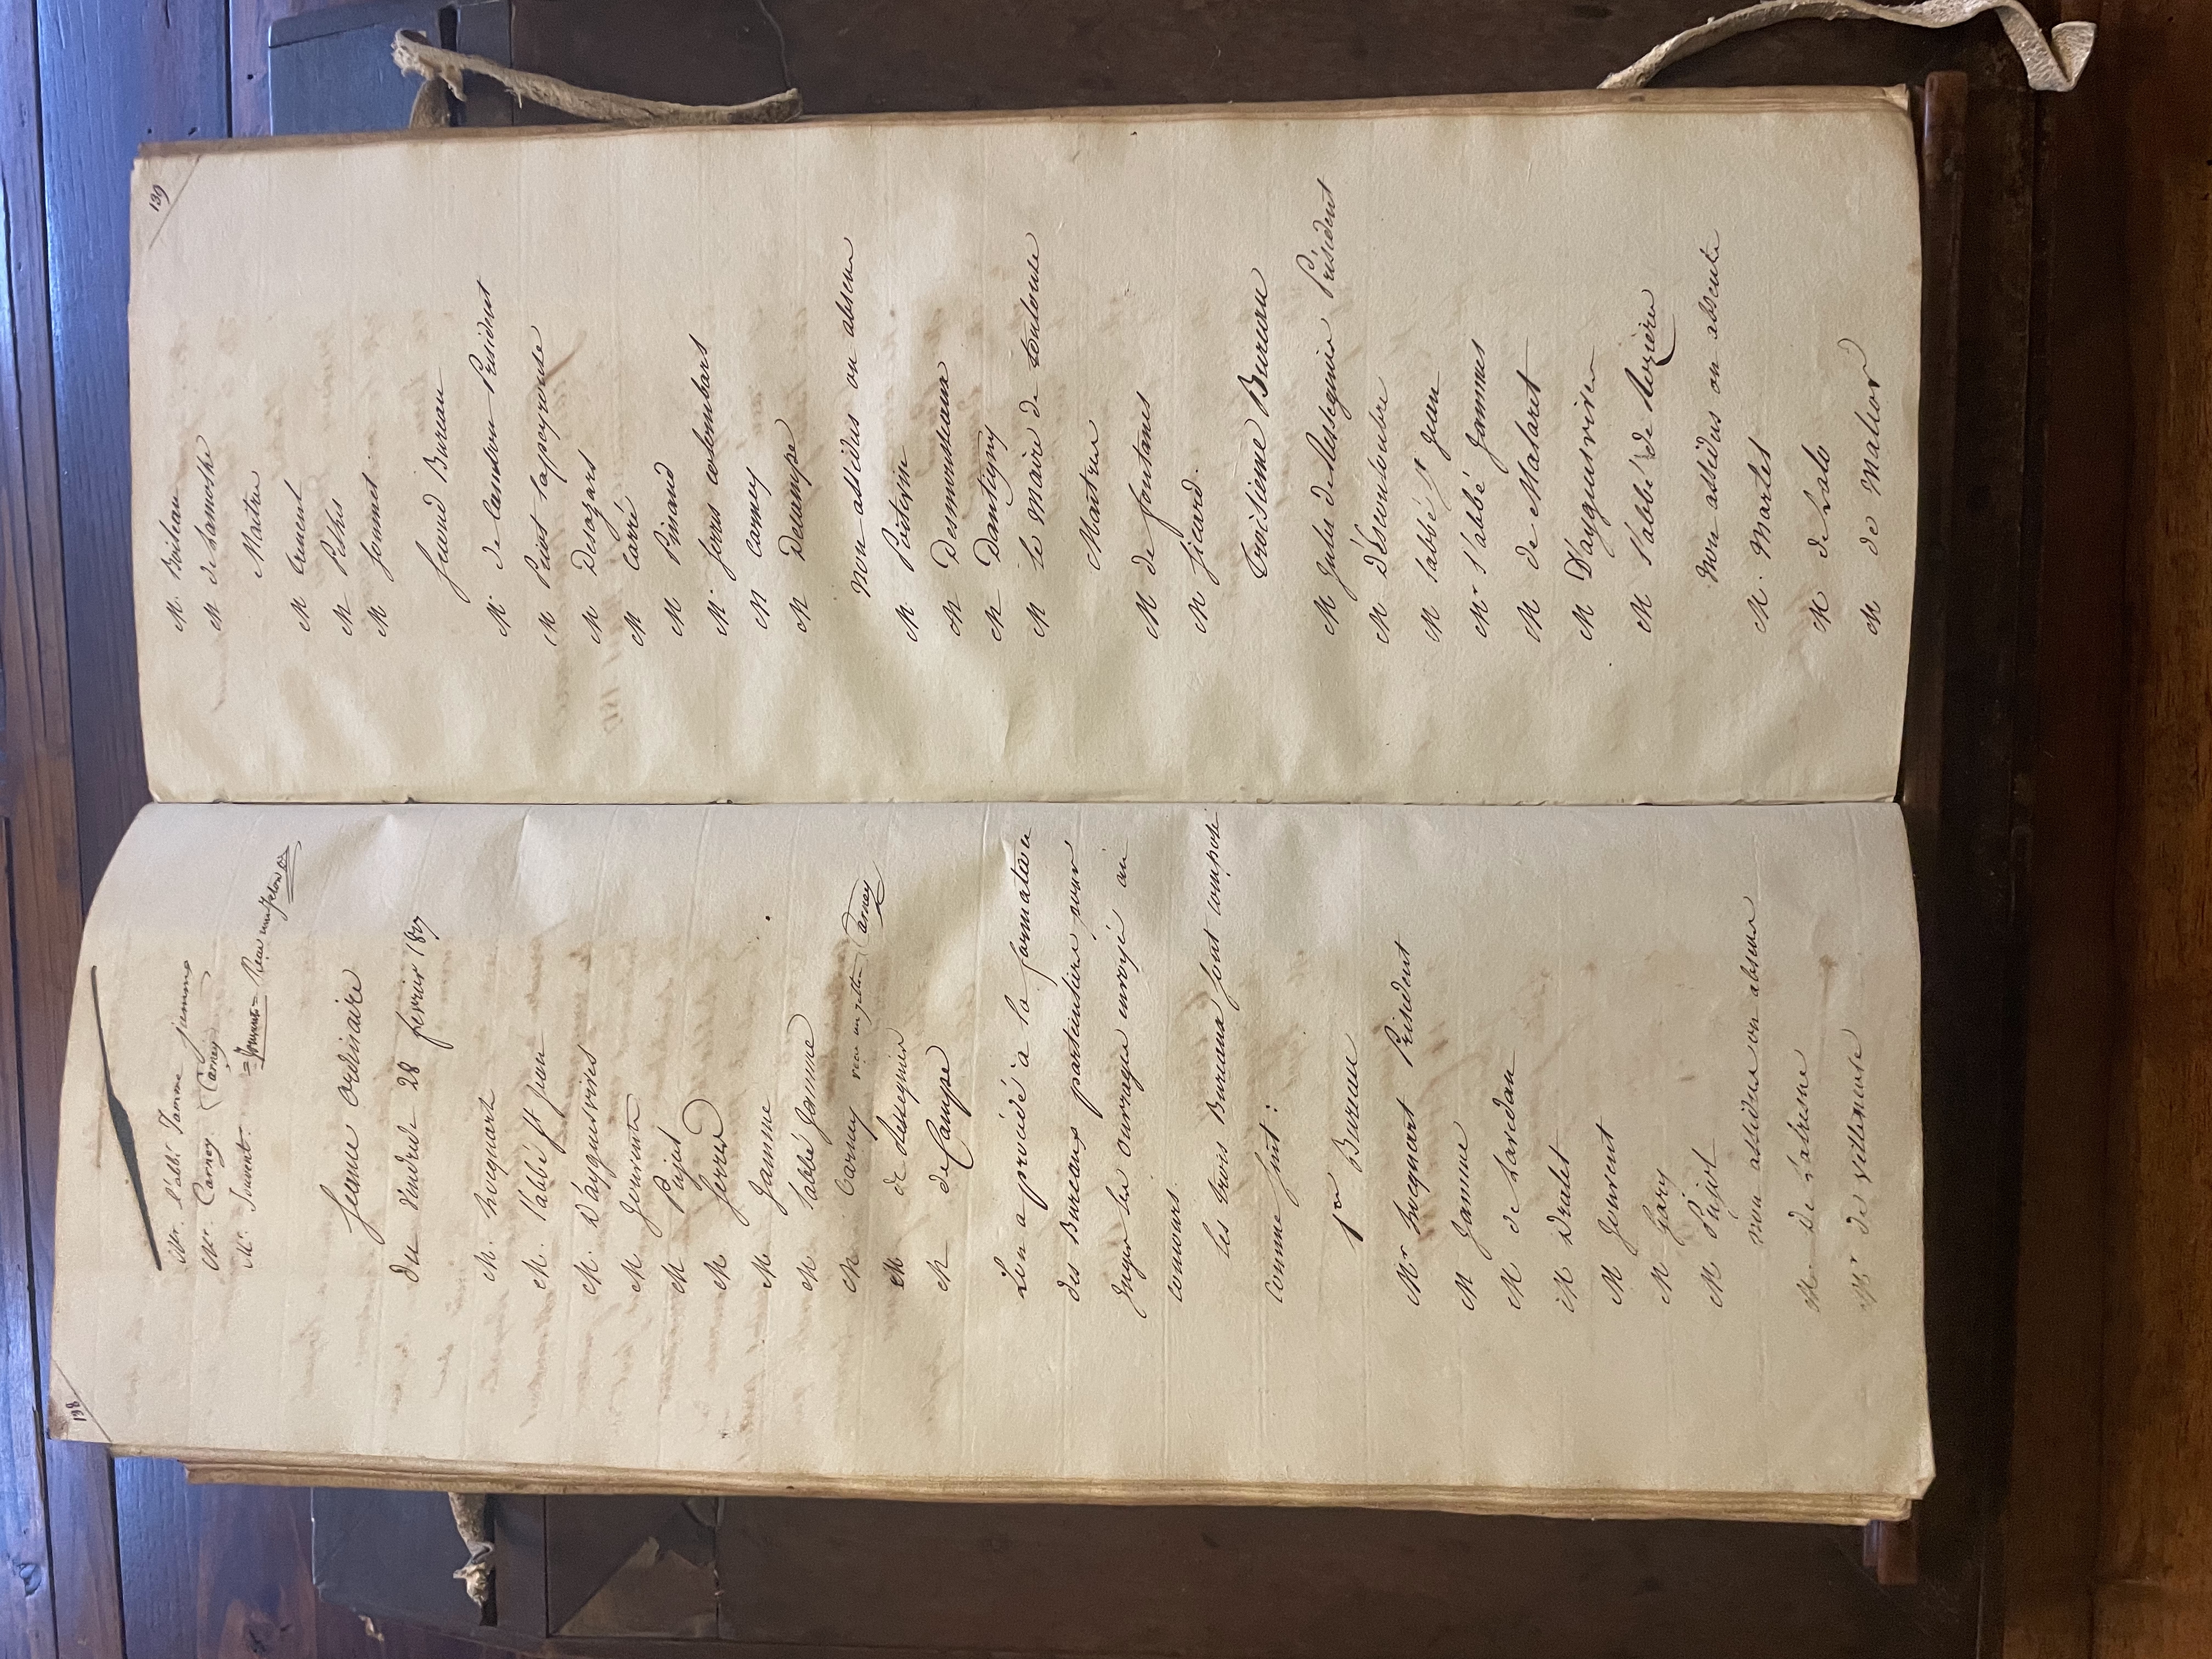 138
Mr. l'abbé Jamme jamme
Mr. Carney. Carney
Mr. Jouvent. =Jouvent=
Seance ordinaire
du Vendredi 28 fevrier 1827
M. hocquart
M. l'abbé St jean
M. D'ayguesvives
M Jouvent
M Pujol
M Serres
M Jamme
M l'abbé Jamme
M Carney Carney
M de Lesseguier
M deCampe
L'on a procédé a la formation
des Bureaux particuliers pour
Juger les ouvrages envoyés au
concours.
Les trois Bureaux sont composés
comme suit:
1er Bureau
Mr hocquart Président
M Jamme
M de Larcidan
M Dralet
M Jouvent
M Gary
M Pujol
non assidus ou absens
M De Labrune
Mr de Villeneuve
139
M. Boileau
M de Lamothe
Maitres
M Cument
M Piths
M Sommet.
Second Bureau
M. de Cambon Président
M Pinet Lapeyrouse
M Desazars
M Carré
M Pinaud
M. Serres colombars
M Carney
M Decampe
Non assidus ou absens
M Poitevin
M Desmousseaux
M Dantigny
M le Maire de toulouse
Maitres
M de fontanes
M Sicard.
troisieme Bureau
M Jules de Lesseguier Président
M D'éscouloubre
M l'abbé St Jean
Mr l'abbé Jammes
M de Malaret
M D'ayguesvives
M l'abbé de Rozières
Non assidus ou absents
M. Martel
M de Lalo
M de Malior